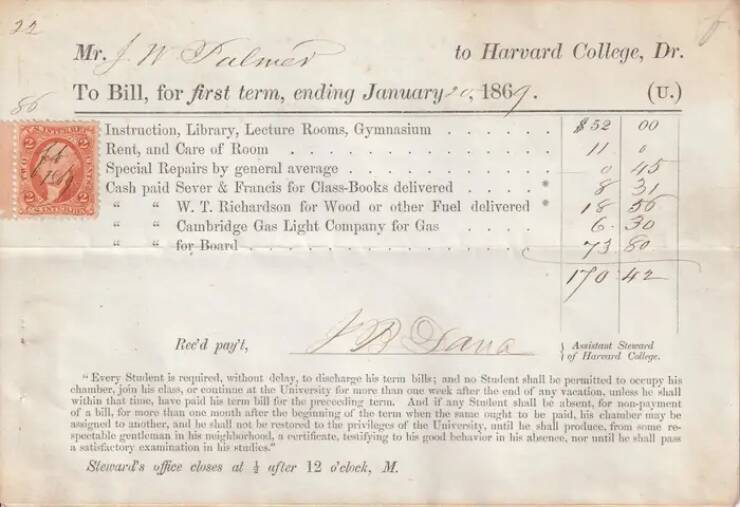 22
Mr. J. W Palmer to Harvard College, Dr.
To Bill, for first term, ending January 20, 1869. (U.)
86
U.S. INTER. REV.
2 2
TWO CENTS
2 2
U.S. INTER. REV.
Instruction, Library, Lecture Rooms, Gymnasium . . . . . . $52 00
Rent, and Care of Room . . . . . . . . . . . . . 11 0
Special Repairs by general average . . . . . . . . . . 0 45
Cash paid Sever & Francis for Class-Books delivered . . . . * 8 31
“ “ W. T. Richardson for Wood or other Fuel delivered * 18 56
“ “ Cambridge Gas Light Company for Gas . . . . 6. 30
“ “ for Board . . . . . . . . . . . . . 73 80
170 42
Rec'd pay't, J B Dana } Assistant Steward
} of Harvard College.
“Every Student is required, without delay, to discharge his term bills; and no Student shall be permitted to occupy his
chamber, join his class, or continue at the University for more than one week after the end of any vacation, unless he shall
within that time, have paid his term bill for the preceeding term. And if any Student shall be absent, for non-payment
of a bill, for more than one month after the beginning of the term when the same ought to be paid, his chamber may be
assigned to another, and he shall not be restored to the privileges of the University, until he shall produce, from some re-
spectable gentleman in his neighborhood, a certificate, testifying to his good behavior in his absence, nor until he shall pass
a satisfactory examination in his studies.”
Steward's office closes at ½ after 12 o'clock, M.